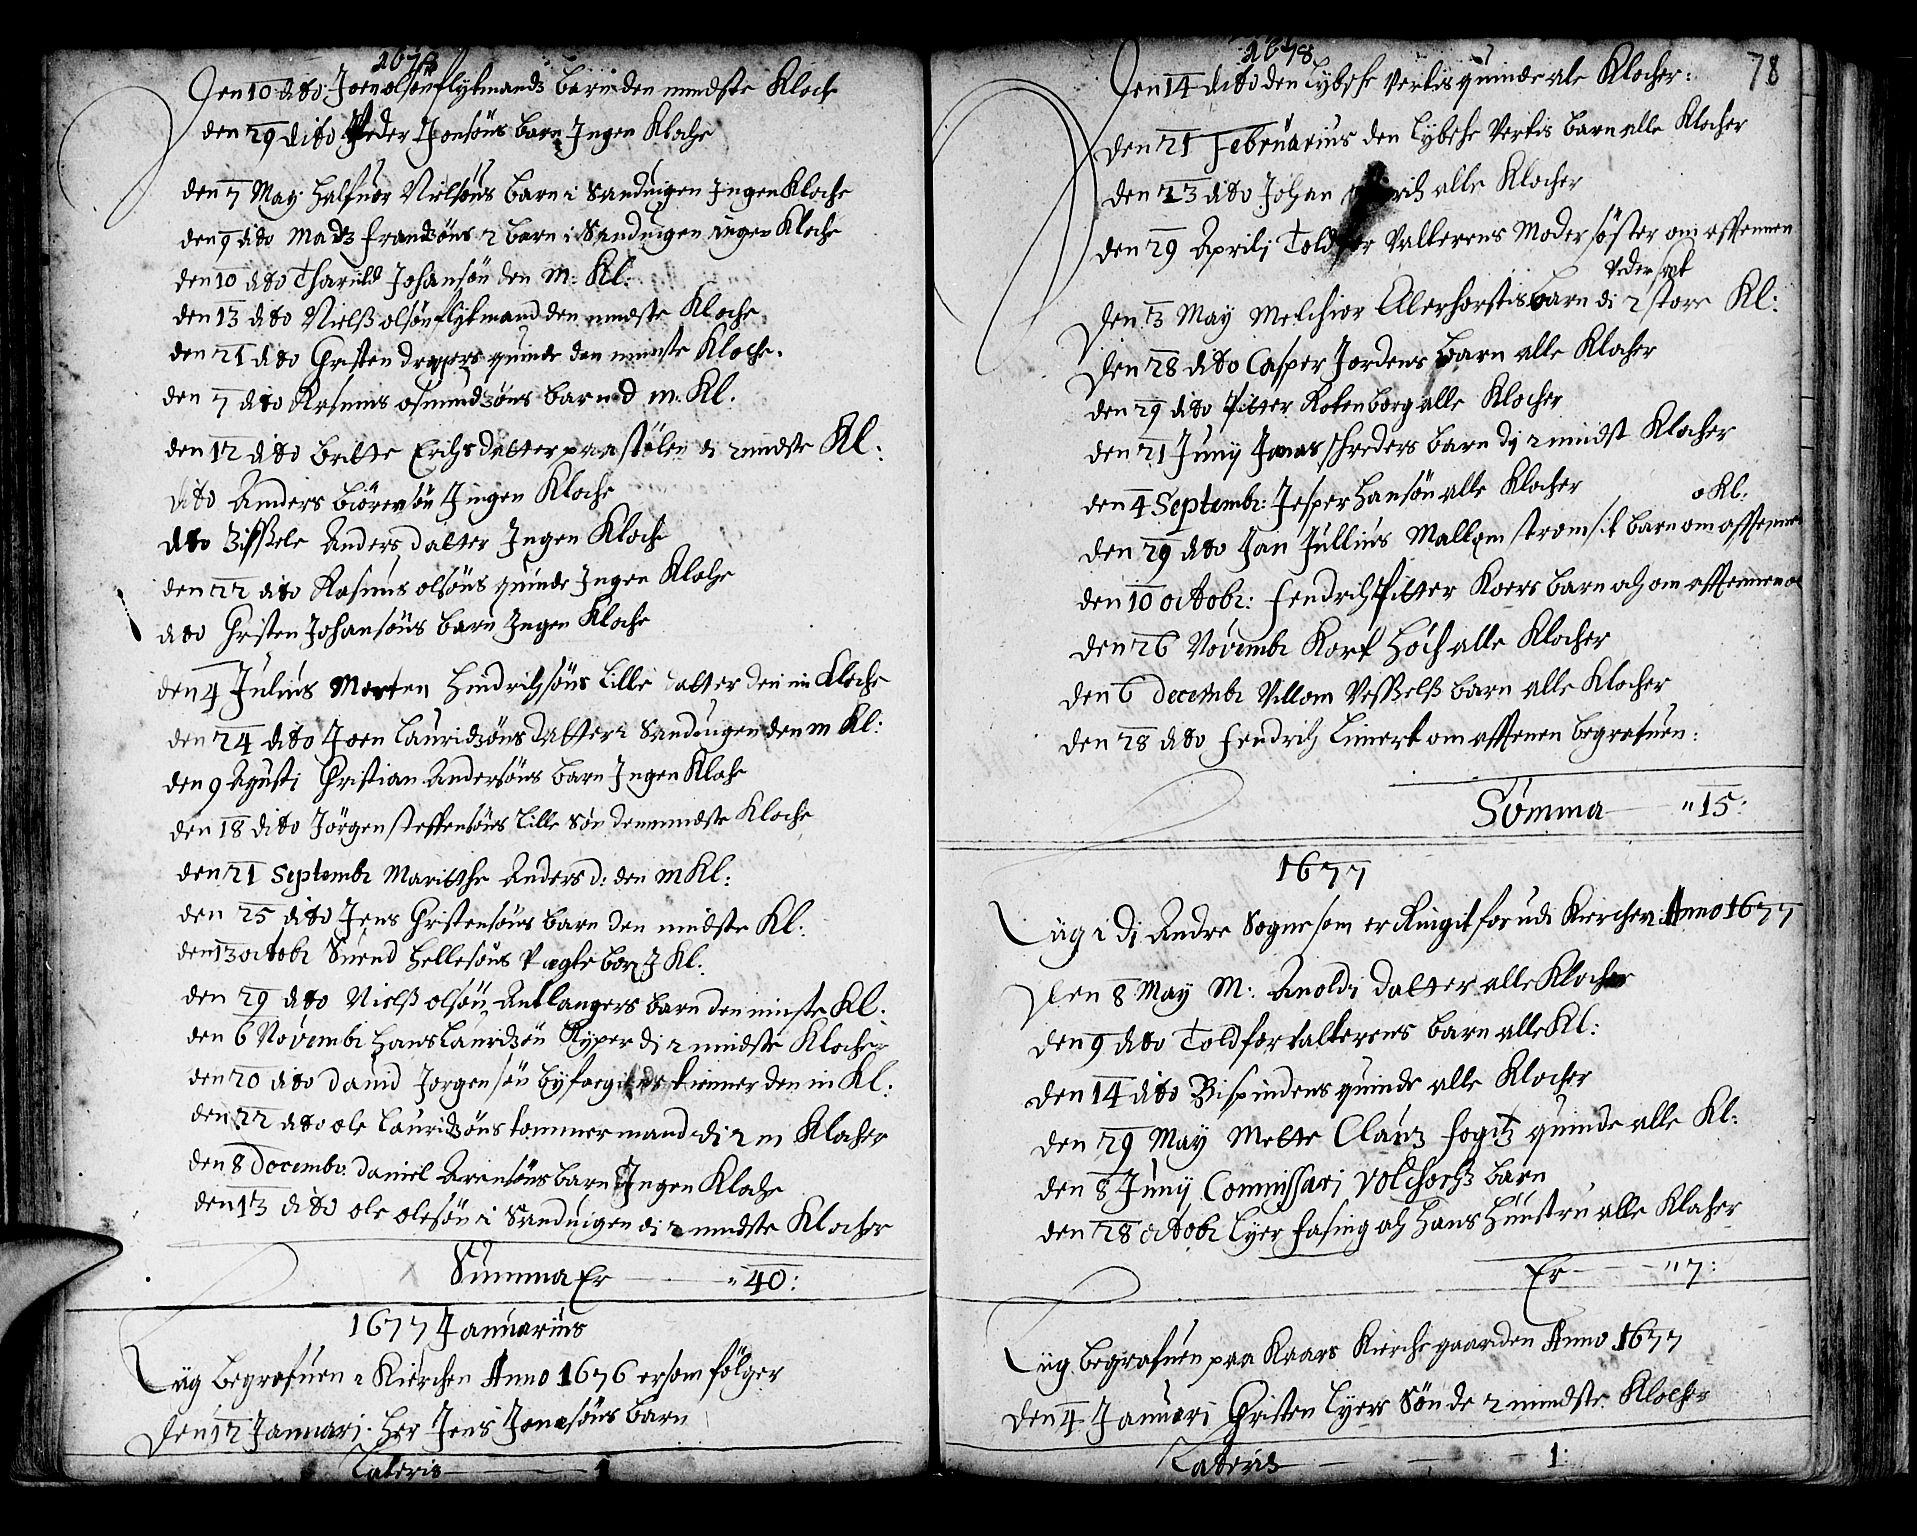 1678
Den 10 dito Joen olsön flytmands barn den mindste Kloch
den 29 dito Peder Jonsöns barn Ingen Kloche
den 7 May Halfuor Nielsöns barn i Sanduigen Ingen Kloche
den 9 dito Madz frandzöns 2 barn i Sanduigen ingen Kloche
den 10 dito Tharuld Johansön den m: Kl:
den 13 dito Nielß olsön flytmand den mindste Kloche
den 21 dito Christen drejers quinde den minste Kloche.
den 7 dito Rasmus osmundzöns barn d m. Kl.
den 12 dito britte Erichs datter paa stölen di 2 mindste Kl:
dito Anders biörensön Jngen Kloche
dito Zißele Anders datter Ingen Kloche
den 22 dito Rasmus olsöns quinde Ingen Kloche
dito Christen Johansöns barn Ingen Kloche
den 4 Julius Morten Hindrichsöns Lille datter den m Kloche
den 24 dito Joen Lauridzöns datter i Sanduigen den m Kl:
den 9 Agusti Christian Andersöns barn Ingen Kloche
den 18 dito Jörgen steffensöns Lille Sön den mindste Kloche
den 21 Septembr Maritthe Anders d: den m Kl:
den 25 dito Jens Christensöns barn den mindste Kl:
den 13 octobr Suend Hellesöns barn J Kl:
den 29 dito Nielß olsön Antlangers barn den minste Kl:
den 6 Novembr Hans Lauridzön Ryper di 2 mindste Klocher
den 20 dito Dauid Jorgensön byfoegitds tienner den m Kl:
den 22 dito ole Lauridzöns tommermand di 2 m Klocher
den 8 Decembr. Daniel Arensöns barn Ingen Kloche
den 13 dito ole olesön i Sanduigen di 2 mindste Klocher
Summa Er — " 40:
1677 Januarius
Liig begrafuen i Kierchen Anno 1676 ersom fölger
Den 12 Januarj. Her Jens Jonesöns barn
Lateris — 1
1678
78
Den 14 dito den Lybske Vertis quinde ale Klocher:
den 21 Februarius den Lybske Vertis barn alle Klocher
den 23 dito Johan alle Klocher
den 29 Aprilj Told Valterens Moder söster om afftennen
Den 3 May Melchior Alerhorstis barn di 2 store Kl:
Den 28 dito Casper Jordens barn alle Klocher
den 29 dito Pitter Rotenborg alle Klocher
den 21 Junij Jonas schreders barn dj 2 mindst Klocher
den 4 Septembr: Jesper Hansön alle Klocher
o Kl:
den 29 dito Jan Jullius Mallom stromsit barn om afftenne
den 10 octobr: Hendrich Pitter Koers barn och om afftennen
den 26 Novembr Kort Höch alle Klocher
den 6 decembr Villom Veßelß barn alle Klocher
den 28 dito Hendrich Limert om afftenen begrafuen:
Somma — " 15:
1677
Liig i dj Andre Sogne som er Ringit for udi Kierchen Anno 1677
Den 8 May M: Anoldj datter alle Klocher
den 9 dito Toldforvalterens barn alle Kl:
den 14 dito Bispindens quinde alle Klocher
den 29 May Mette Clauz fogitz quinde alle Kl:
den 8 Junij Commissarj Volchorß barn
den 28 octobr Lyer fasing och Hans Hustru alle Klocher
Er — " 7:
Liig begrafuen paa Kaars Kierche gaarden Anno 1677
Den 4 Januari Christen Lyers Sön de 2 mindste Klocher
Lateris — 1: